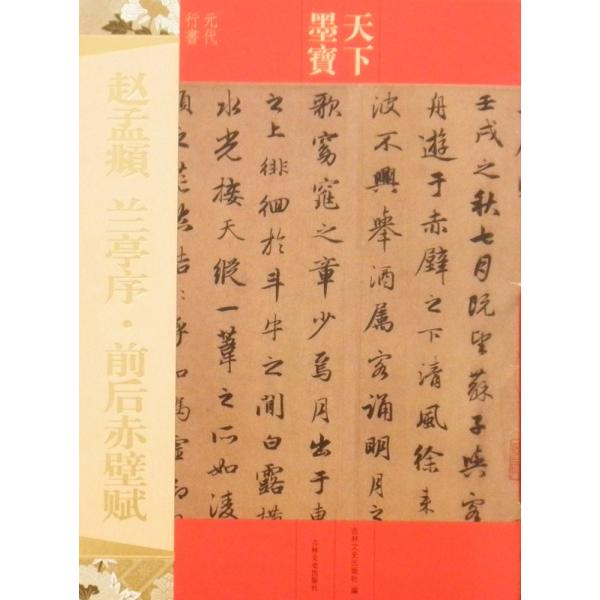 天下
墨寶
元代
行書
赵孟頫 兰亭序·前后赤壁赋
壬戌之秋七月既望蘇子與客
舟遊于赤壁之下清風徐来
波不興舉酒属客誦明月之
歌窈窕之章少焉月出于東
之上徘徊於斗牛之間白露横
水光接天縱一葦之所如淩
頃之茫然浩浩乎如馮虚御
吉林文史出版社 編
吉林文史出版社